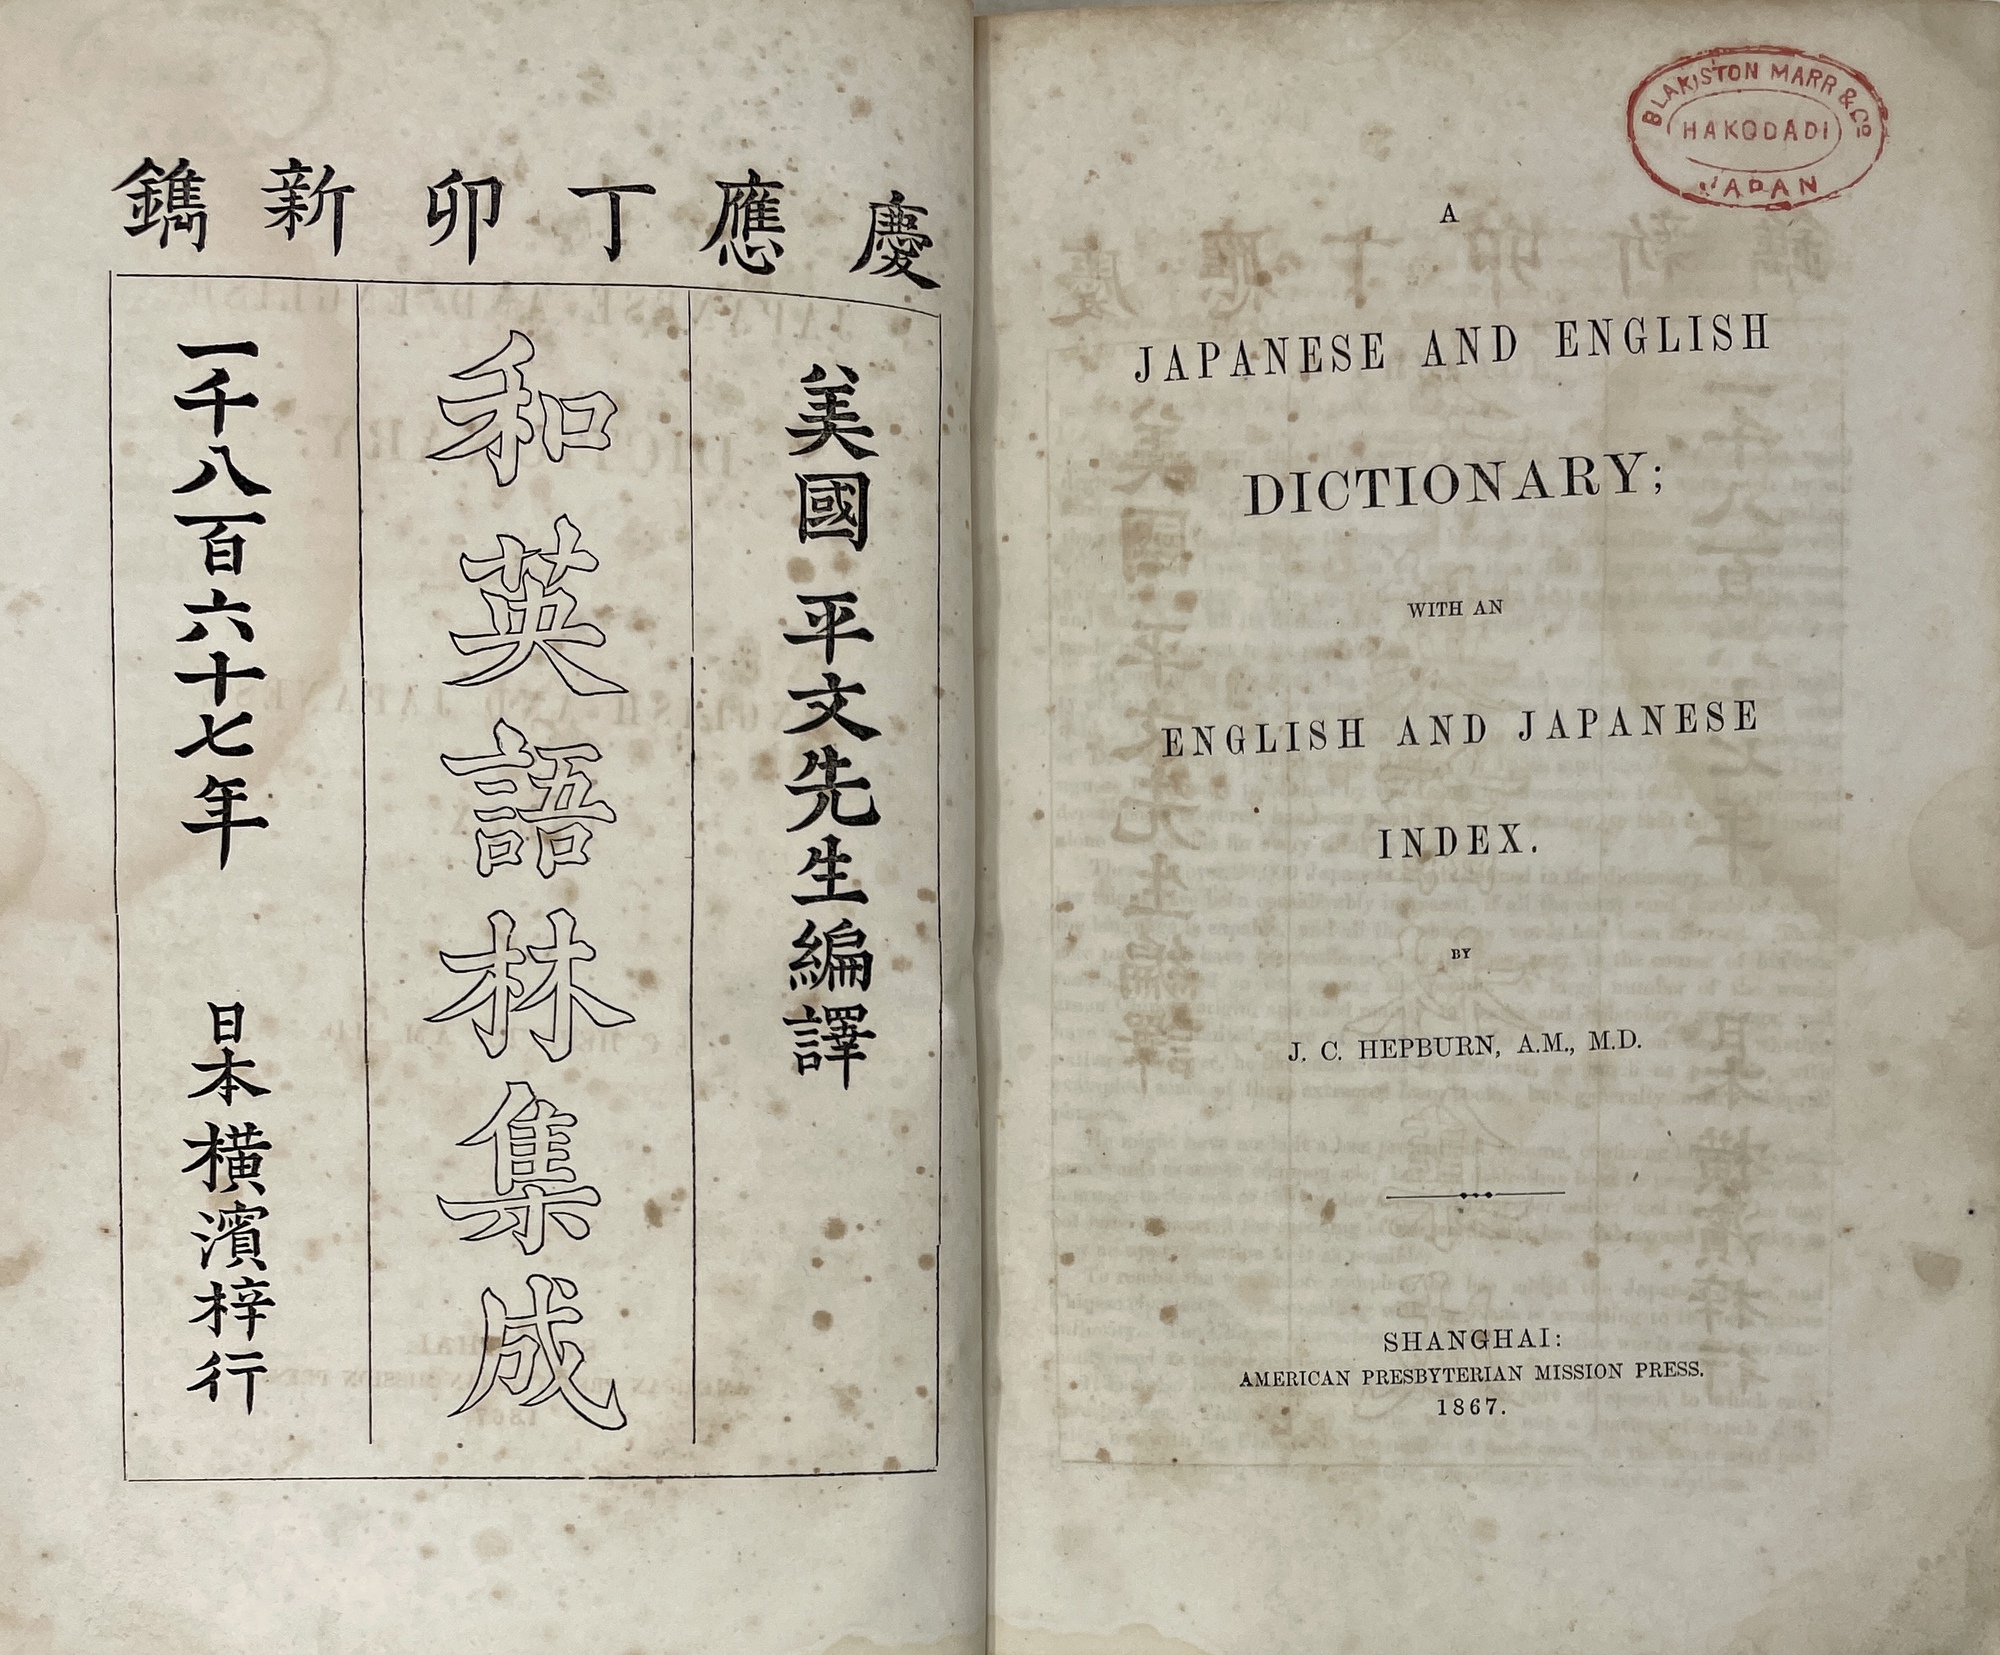 慶應丁卯新鐫
美國 平文先生編譯
和英語林集成
一千八百六十七年 日本橫濱梓行
BLAKISTON MARR & Co
HAKODADI
JAPAN
A
JAPANESE AND ENGLISH
DICTIONARY;
WITH AN
ENGLISH AND JAPANESE
INDEX.
BY
J. C. HEPBURN, A.M., M.D.
SHANGHAI:
AMERICAN PRESBYTERIAN MISSION PRESS.
1867.